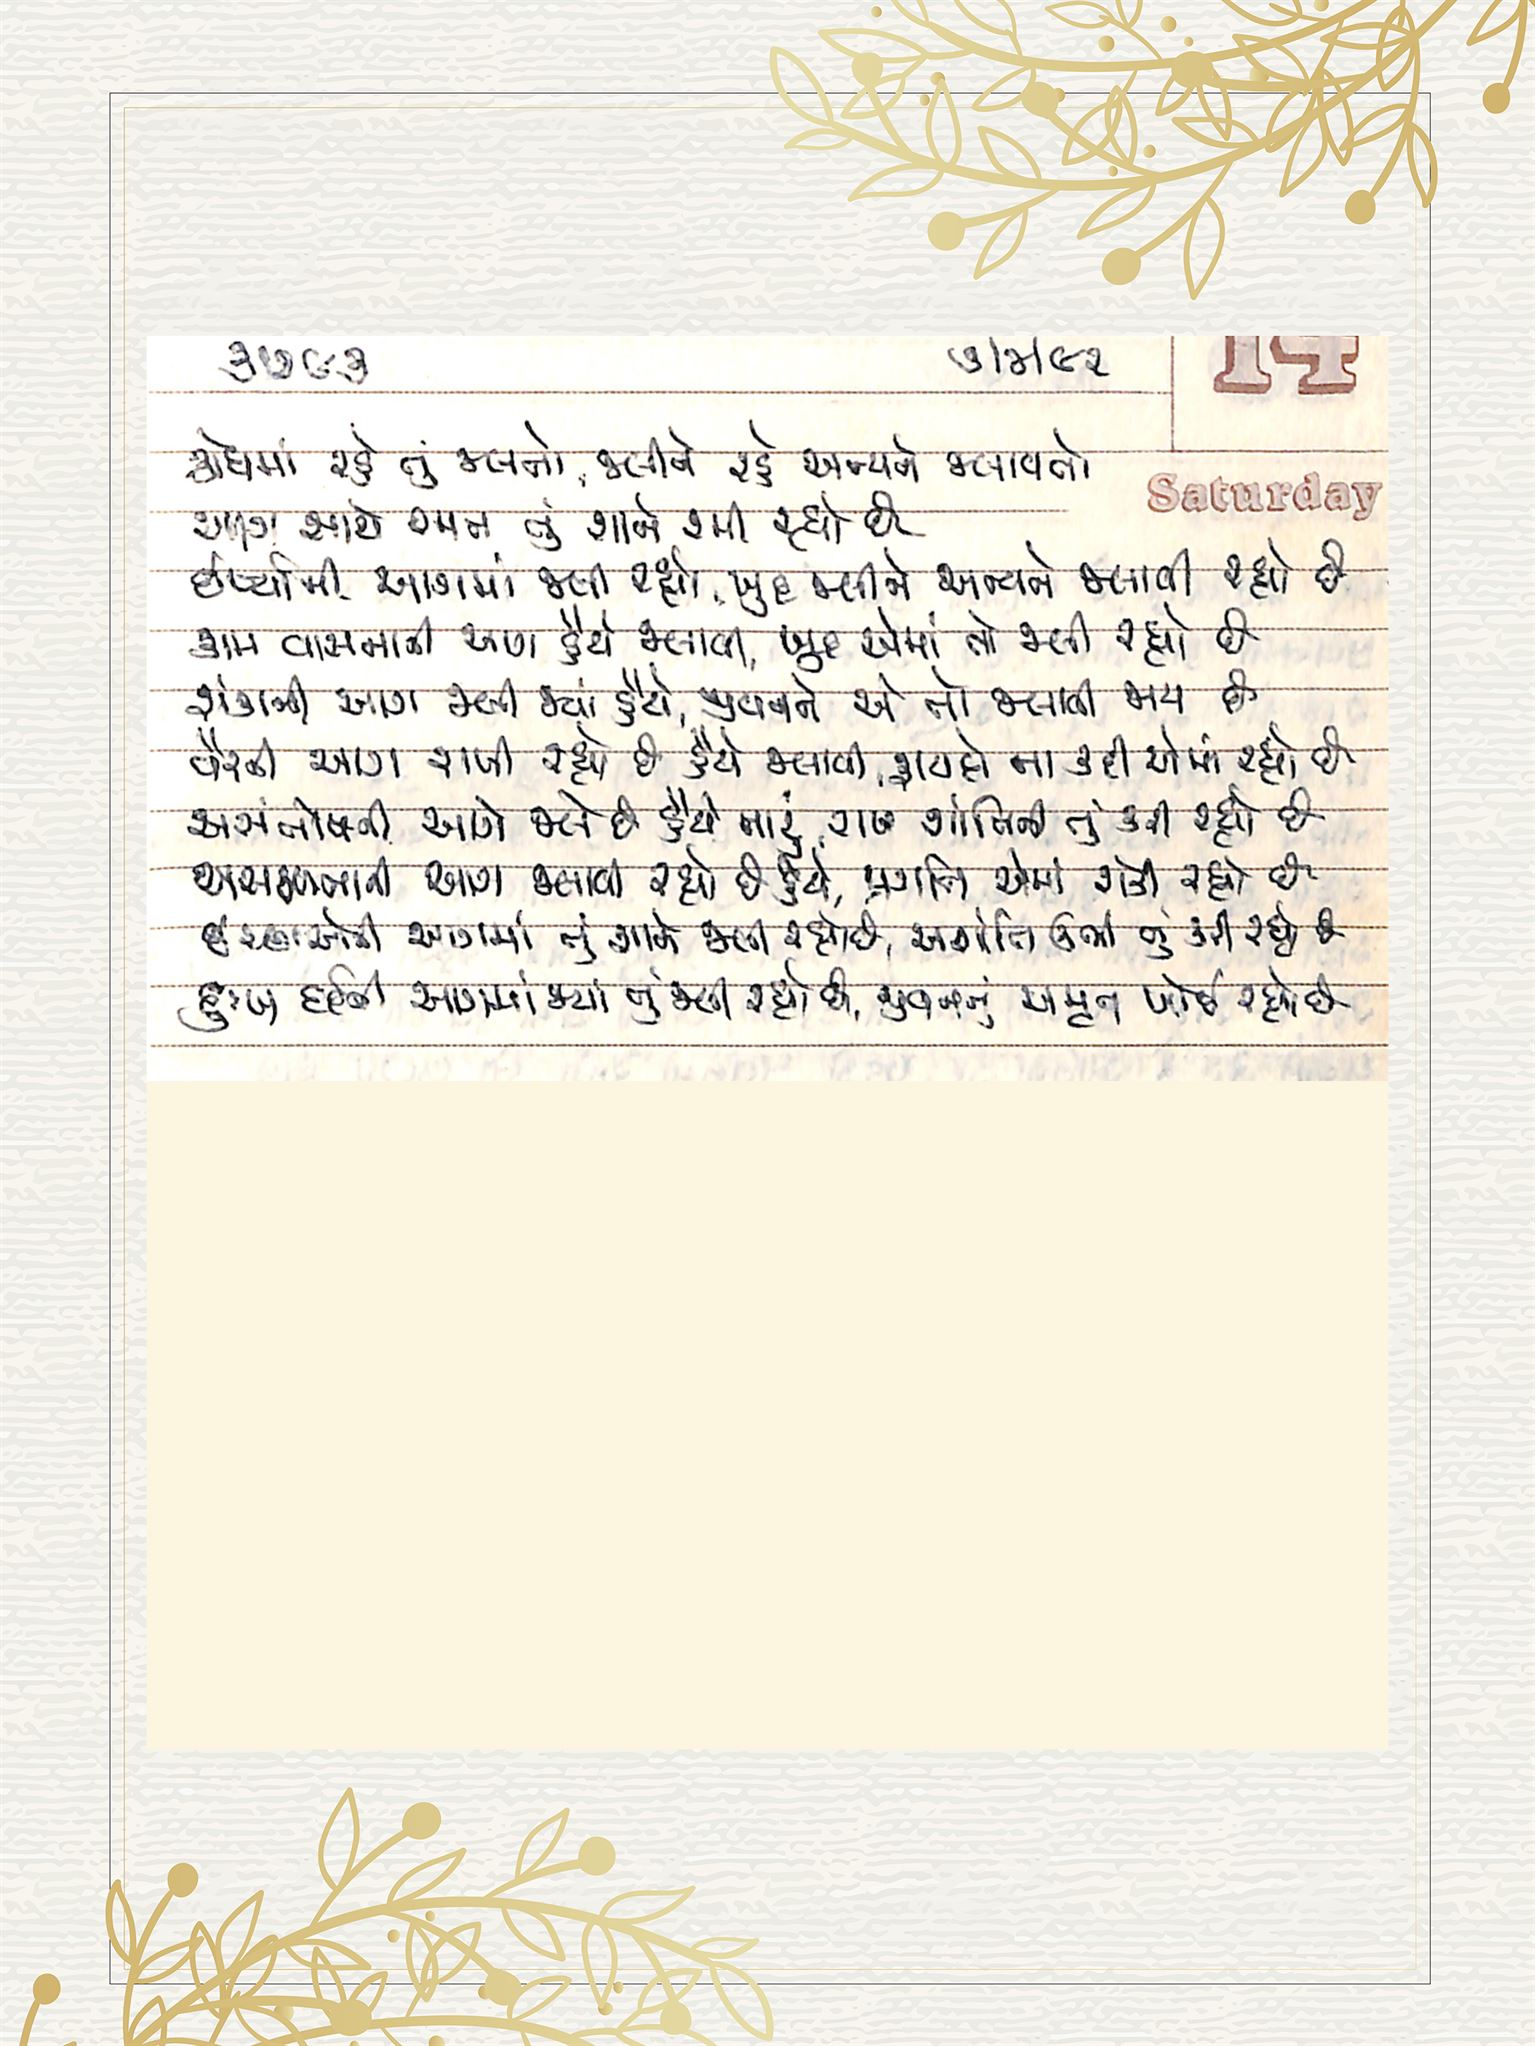 ૩૭૯૩ ૭/૪/૯૨ 14
ક્રોધમાં રહે તું જલતો, જલીને રહે અન્યને જલાવતો
Saturday
આગ સાથે રમત તું શાને રમી રહ્યો છે
ઈર્ષ્યાની આગમાં જલી રહ્યો, ખુદ જલીને અન્યને જલાવી રહ્યો છે
કામ વાસનાની આગ હૈયે જલાવી, ખુદ એમાં તો જલી રહ્યો છે
શંકાની આગ જલી જ્યાં હૈયે, જીવનને એ તો જલાવી જાય છે
વૈરની આગ રાખી રહ્યો છે હૈયે જલાવી, ફાયદો ના કદી એમાં રહ્યો છે
અસંતોષની આગે જલે છે હૈયું તારું, રાખ શાંતિની તું કરી રહ્યો છે
અસફળતાની આગ જલાવી રહ્યો છે હૈયે, પ્રગતિ એમાં રોકી રહ્યો છે
ઇચ્છાઓની આગમાં તું શાને જલી રહ્યો છે, અશાંતિ ઊભી તું કરી રહ્યો છે
દુઃખ દર્દની આગમાં જ્યાં તું જલી રહ્યો છે, જીવનનું અમૃત ખોઈ રહ્યો છે